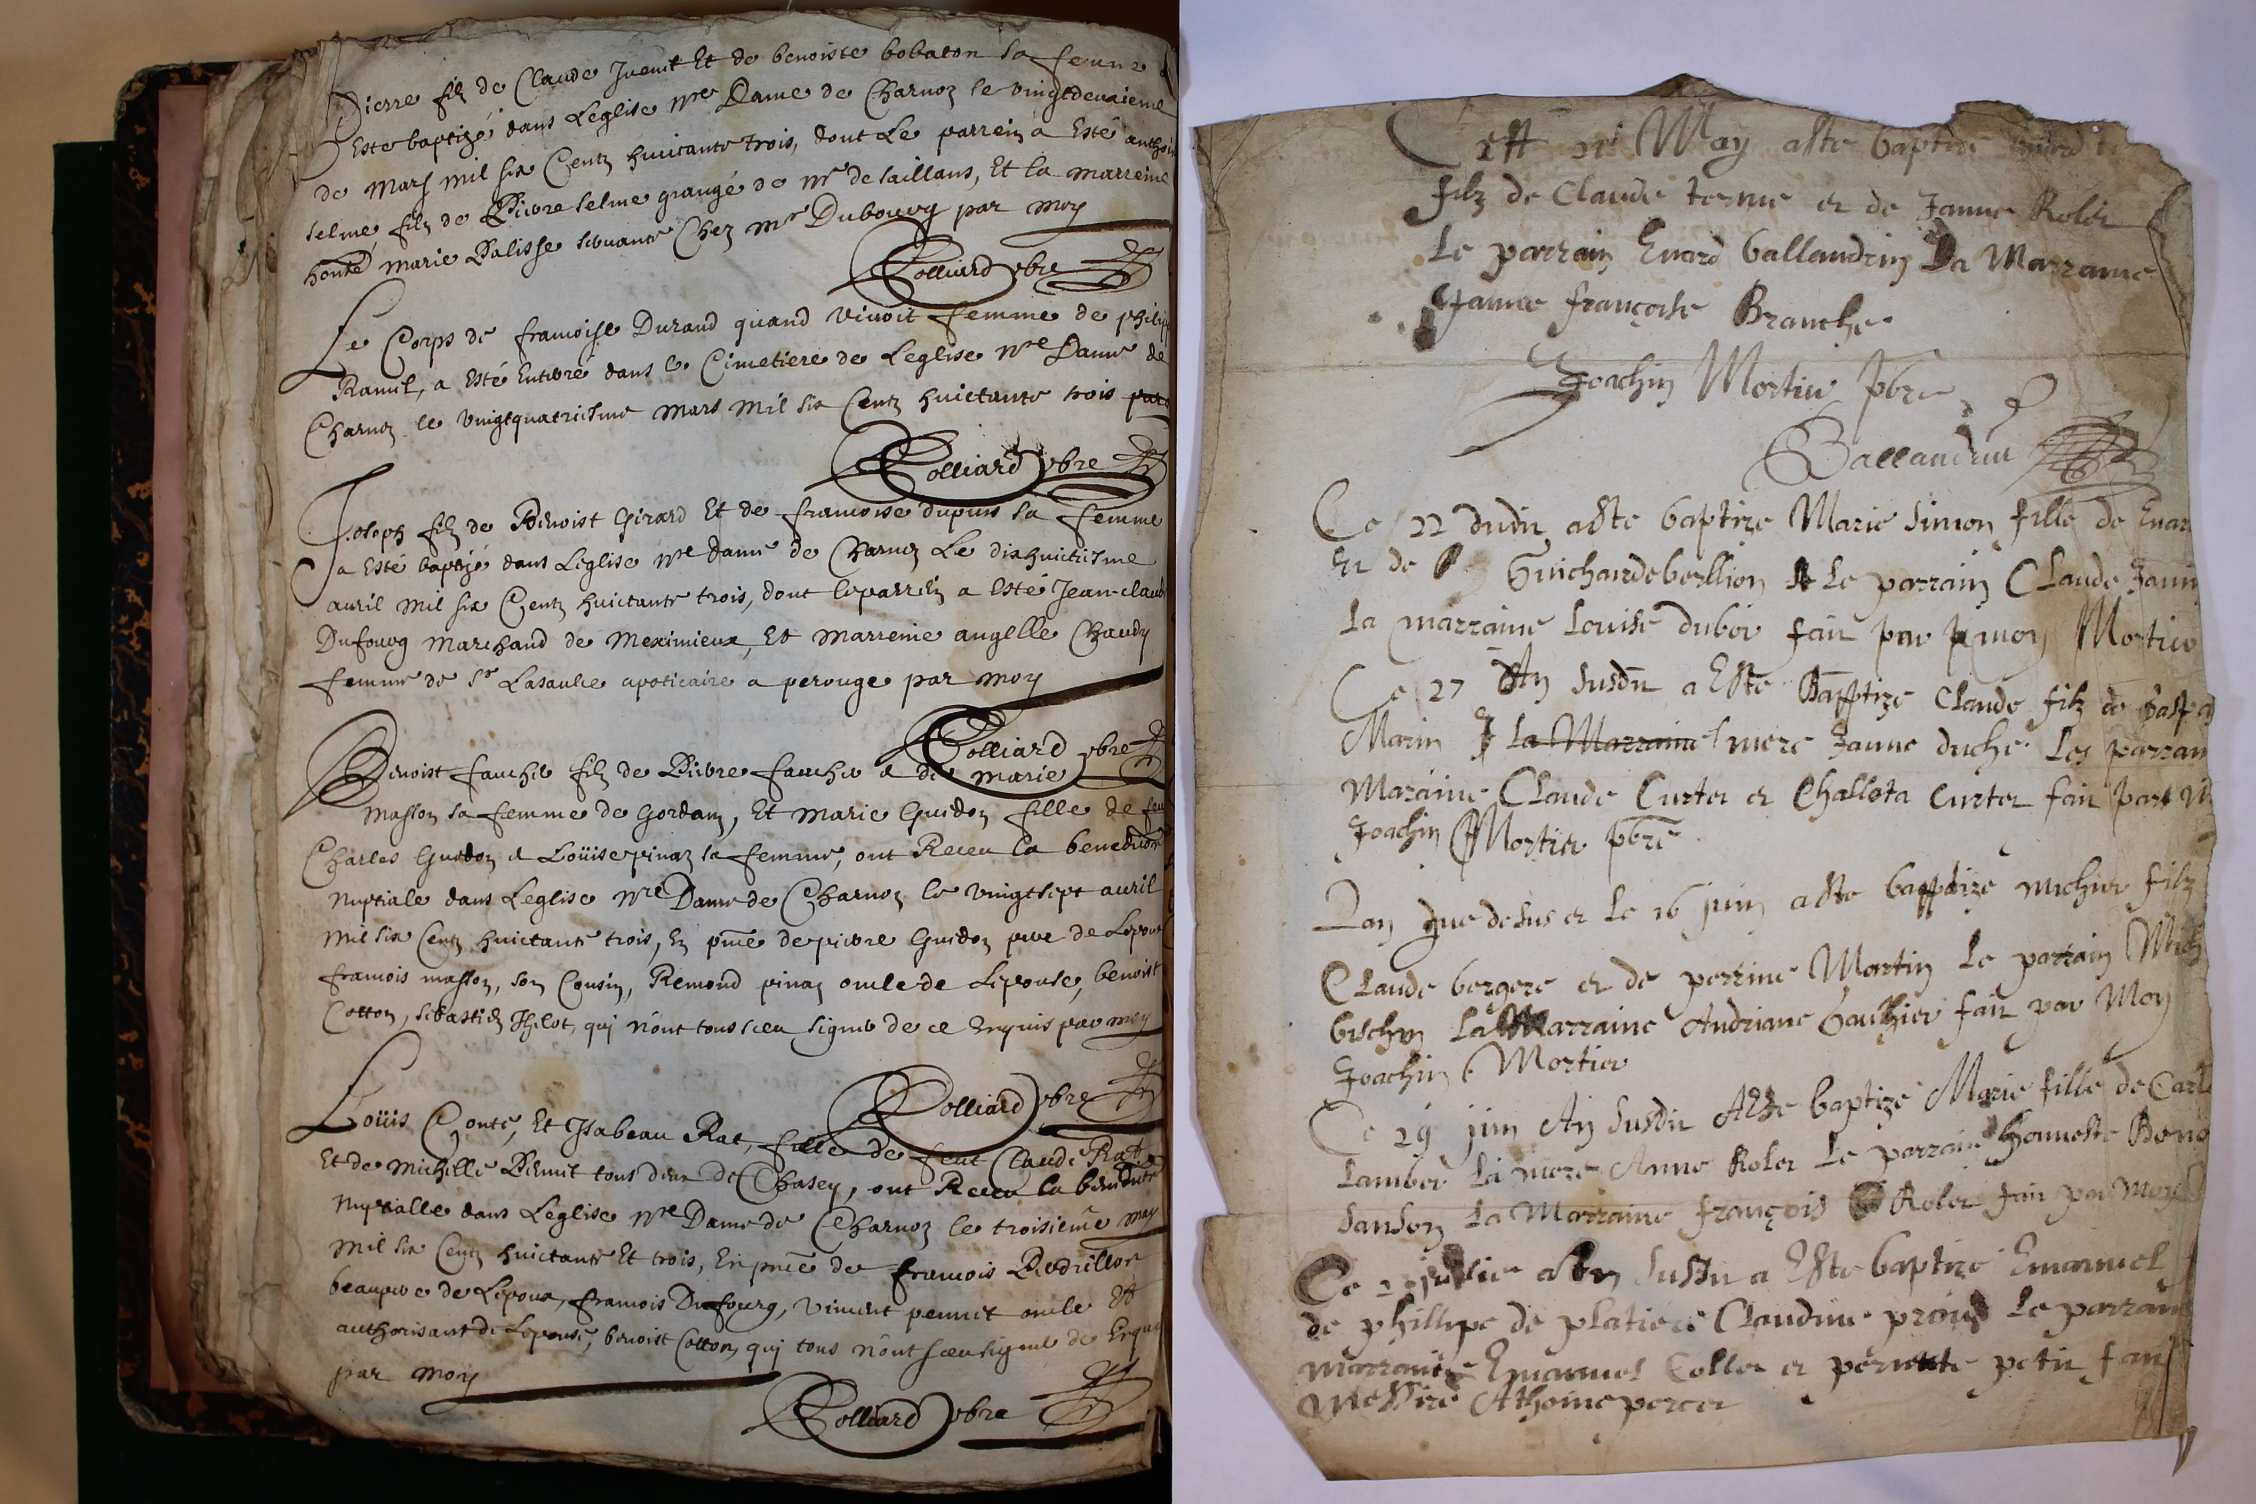 Pierre filz de Claude Juenit Et de benoiste bobaton sa femme
Esté baptizé dans Leglise nre Dame de Charnoz le vingtdeuxieme
de Mars mil six Centz huictante trois, dont Le parrein a Esté anthoi
selme, filz de Pierre selme grangé de mr de saillans, Et la marreine
honte Marie Palisse servante Chez mr Dubourg par moy
Colliard pbre
Le Corps de francoise Durand quand vivoit femme de philip
Ravit, a Esté Enterré dans le Cimetiere de Leglise nre Dame de
Charnoz le vingtquatriesme mars mil six Centz huictante trois par
Colliard pbre
Joseph filz de Benoist Girard Et de francoise dupuis sa femme
a Esté baptizé dans Leglise nre dame de Charnoz Le dixhuictiesme
auril mil six Centz huictante trois, dont leparrein a Esté Jean-claud
Dufourg Marchand de Meximieux, Et marreine angelle Chaudy
femme de sr Lasaulce apoticaire a perouge par moy
Colliard pbre
Benoist faucher filz de Pierre faucher & de marie
masson sa femme de Gordan, Et marie Guidon fille de feu
Charles Guidon & Loüise pinaz sa femme, ont Receu la benediction
nuptiale dans Leglise nre Dame de Charnoz le vingtsept auril
mil six Centz huictante trois, En pnce de pierre Guidon pere de Lepouse
francois masson, son Cousin, Remond pinaz oncle de Lepouse, benoist
Cotton, sebastien Thelot, qui n'ont tous sceu signer de ce Enquis par moy
Colliard pbre
Loüis Conte, Et Isabeau Rat, fille de feut Claude Rat
Et de Michelle Penuit tous deux de Chasey, ont Receu la benedite
nuptialle dans Leglise nre Dame de Charnoz le troisieme may
mil six Centz huictante Et trois, En pnce de francois Pedrillon
beaupere de Lepoux, francois Dufourg, vincent pennet oncle Et
authorisant de Lepouse, benoist Cotton, qui tous n'ont sceu signer de Enquis
par moy
Colliard pbre
Cest 21 May a este baptize Enard
filz de Claude terme et de Janne Rolet
Le parrain Enard ballandrin La Marraine
Janne françoise Branche
Joachin Mortier pbre
Ballandrin
Ce 22 dudit a este baptize Marie Simon fille de Enar
Et de Guichardebertlion Le parrain Claude Jann
La marraine Louise duboi fait par moy Mortier
Ce 27 An susdit a Este Baptize Claude filz de Gaspa
Marin la Marraine mere Janne duche Les parrain
Maraine Claude Curtet et Challota Curtet fait par
Joachin Mortier pbre
Lan que desus et Le 16 juin a este baptize michier filz
Claude bergere et de perrine Martin Le parrain Mich
bischon La Marraine Andriane Gauthier fait par Moy
Joachin Mortier
Ce 29 juin An susdit A Este baptize Marie fille de Carl
Lambert La mere Anne Rolet Le parrain Honneste Beno
Sanson La Marraine françois Rolet fait par Moy
Ce 2 An susdit a Este baptize Emanuel
de phillipe de platiere Claudine Le parrain
marraine Emanuel Collet et pernette petit fait
Messire Athoine percet